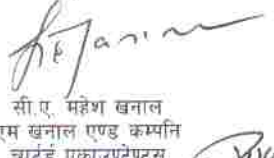 सी.ए. महेश खनाल
एम खनाल एण्ड कम्पनि
चार्टर्ड एकाउण्टेण्ट्स